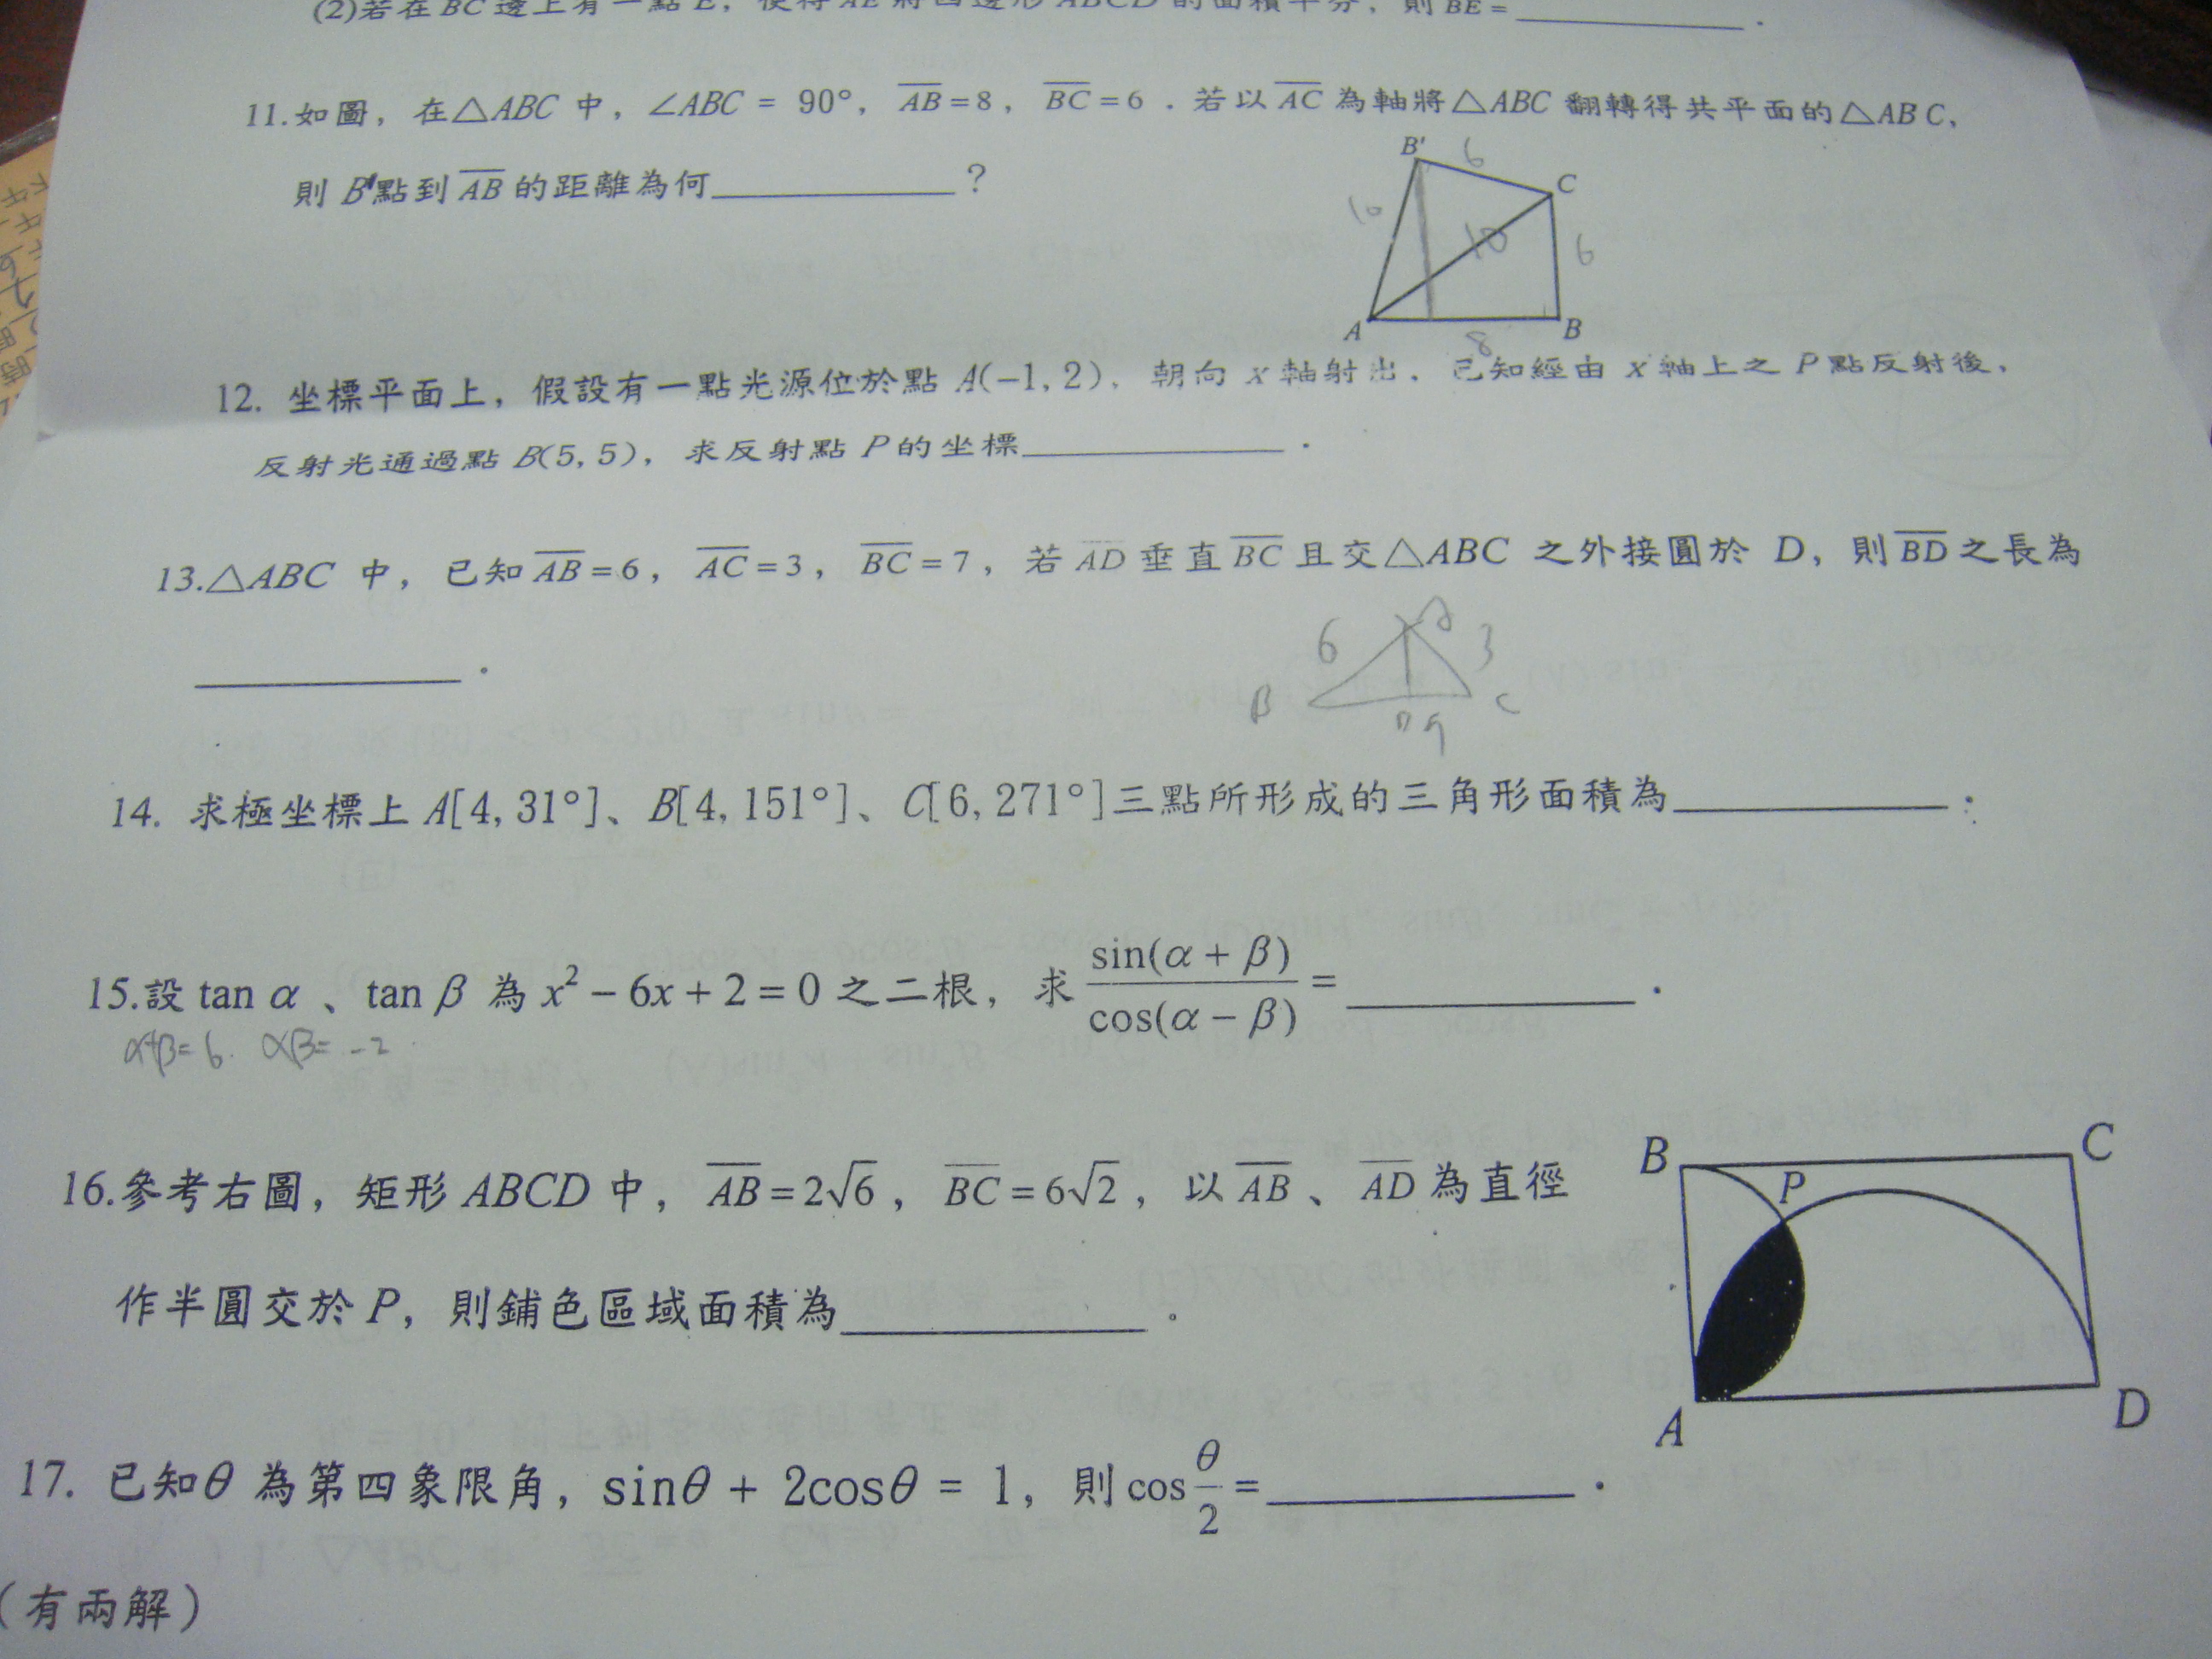 (2)若在 BC 邊上有一點 E, 使得 AE 將四邊形 ABCD 的面積平分, 則 BE = ________ .
11.如圖, 在△ABC 中, ∠ABC = 90°, AB=8, BC=6 . 若以 AC 為軸將△ABC 翻轉得共平面的△AB C,
則 B'點到 AB 的距離為何________?
B'
6
C
10
10
6
A
8
B
12. 坐標平面上, 假設有一點光源位於點 A(−1, 2), 朝向 x 軸射出. 已知經由 x 軸上之 P 點反射後,
反射光通過點 B(5, 5), 求反射點 P 的坐標________ .
13.△ABC 中, 已知 AB=6, AC=3, BC=7, 若 AD 垂直 BC 且交△ABC 之外接圓於 D, 則 BD 之長為
________ .
6
3
B
C
14. 求極坐標上 A[4, 31°]、B[4, 151°]、C[6, 271°]三點所形成的三角形面積為________ .
15.設 tan α 、tan β 為 x² − 6x + 2 = 0 之二根, 求 sin(α + β)/cos(α − β) = ________ .
α+β=6. αβ= -2
16.參考右圖, 矩形 ABCD 中, AB=2√6, BC=6√2, 以 AB、AD 為直徑
作半圓交於 P, 則鋪色區域面積為________ 。
B
P
C
A
D
17. 已知θ 為第四象限角, sinθ + 2cosθ = 1, 則 cos θ/2 = ________ .
(有兩解)